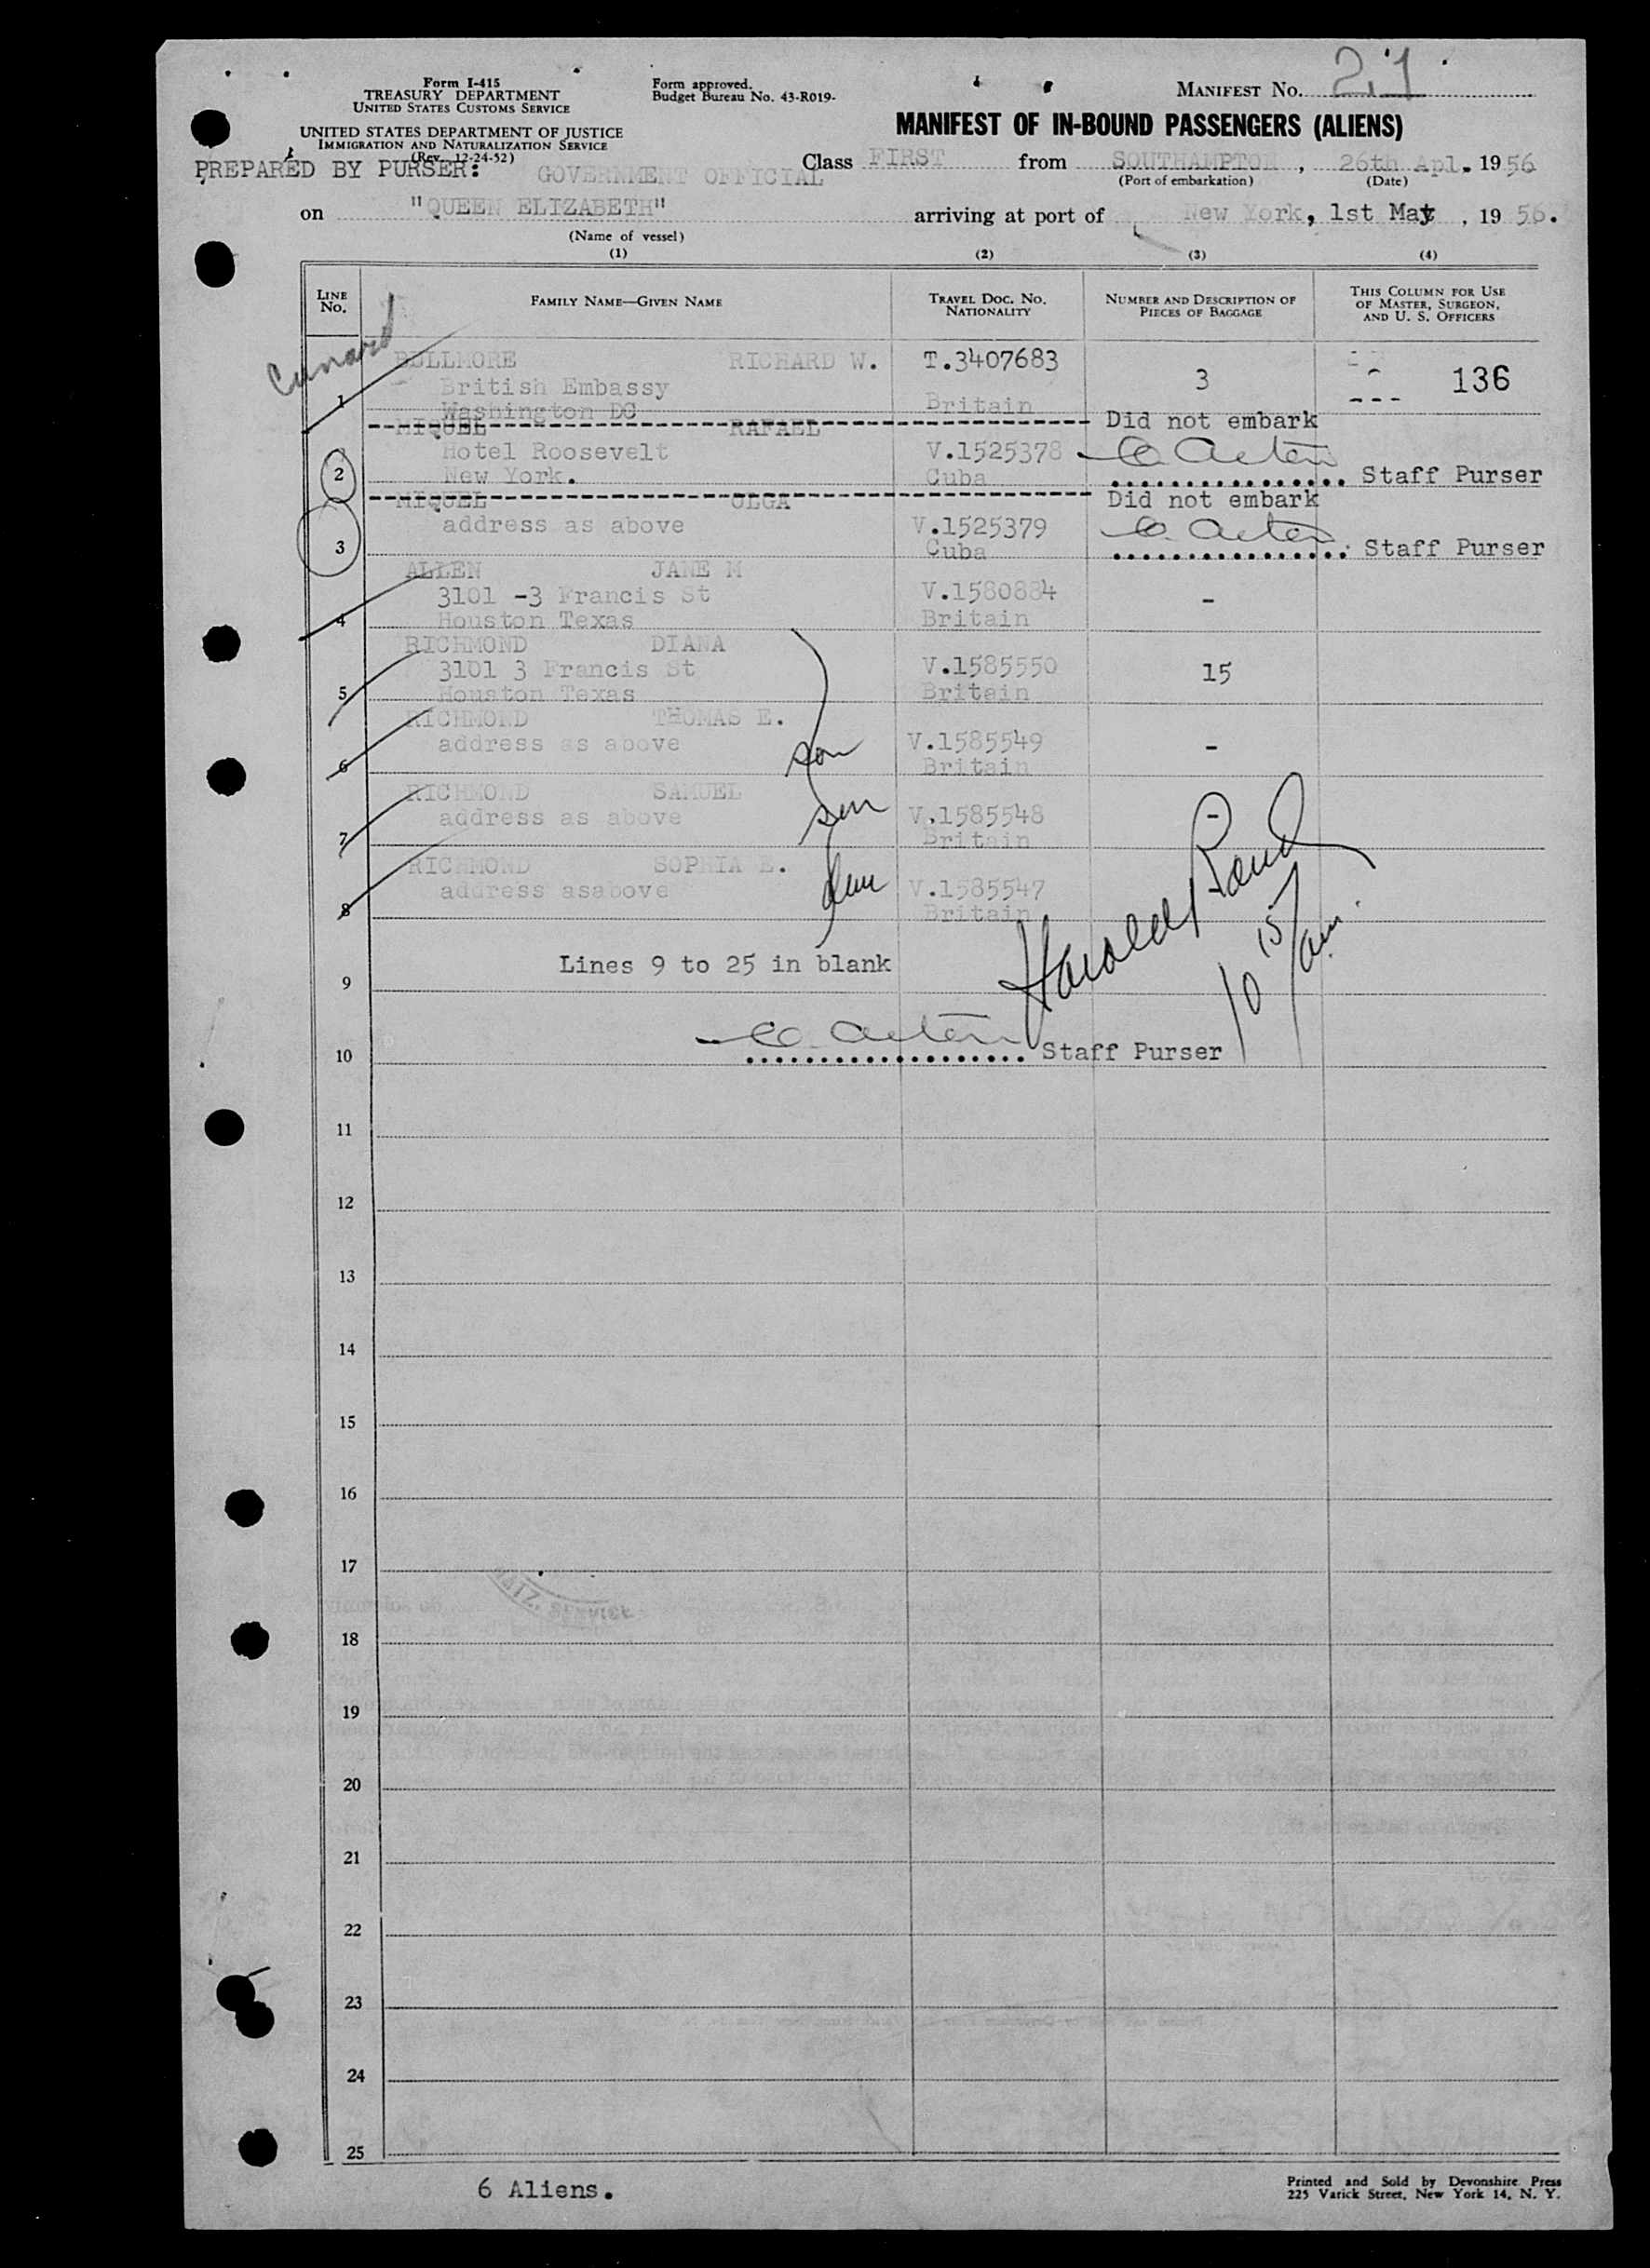 Form I-415
TREASURY DEPARTMENT
UNITED STATES CUSTOMS SERVICE
UNITED STATES DEPARTMENT OF JUSTICE
IMMIGRATION AND NATURALIZATION SERVICE
(Rev. 12-24-52)
Form approved.
Budget Bureau No. 43-R019-
MANIFEST NO. 21
MANIFEST OF IN-BOUND PASSENGERS (ALIENS)
PREPARED BY PURSER: GOVERNMENT OFFICIAL Class FIRST from SOUTHAMPTON, 26th Apl. 1956
(Port of embarkation) (Date)
on "QUEEN ELIZABETH" arriving at port of New York, 1st May, 1956.
(Name of vessel)
(1) (2) (3) (4)
LINE NO. FAMILY NAME—GIVEN NAME TRAVEL DOC. NO. NATIONALITY NUMBER AND DESCRIPTION OF PIECES OF BAGGAGE THIS COLUMN FOR USE OF MASTER, SURGEON, AND U. S. OFFICERS
Cunard
BULLMORE RICHARD W. T.3407683
British Embassy 3 136
1 Washington DC Britain
MIQUEL RAFAEL Did not embark
Hotel Roosevelt V.1525378
2 New York. Cuba Staff Purser
MIQUEL OLGA Did not embark
address as above V.1525379
3 Cuba Staff Purser
ALLEN JANE M
3101 -3 Francis St V.1580884 -
4 Houston Texas Britain
RICHMOND DIANA
3101 3 Francis St V.1585550 15
5 Houston Texas Britain
RICHMOND THOMAS E.
address as above son V.1585549 -
6 Britain
RICHMOND SAMUEL
address as above son V.1585548 -
7 Britain
RICHMOND SOPHIA E.
address asabove dau V.1585547
8 Britain
Harold
10 15/am.
Lines 9 to 25 in blank
9
10 Staff Purser
11
12
13
14
15
16
17
18
19
20
21
22
23
24
25
6 Aliens.
Printed and Sold by Devonshire Press
225 Varick Street, New York 14, N. Y.